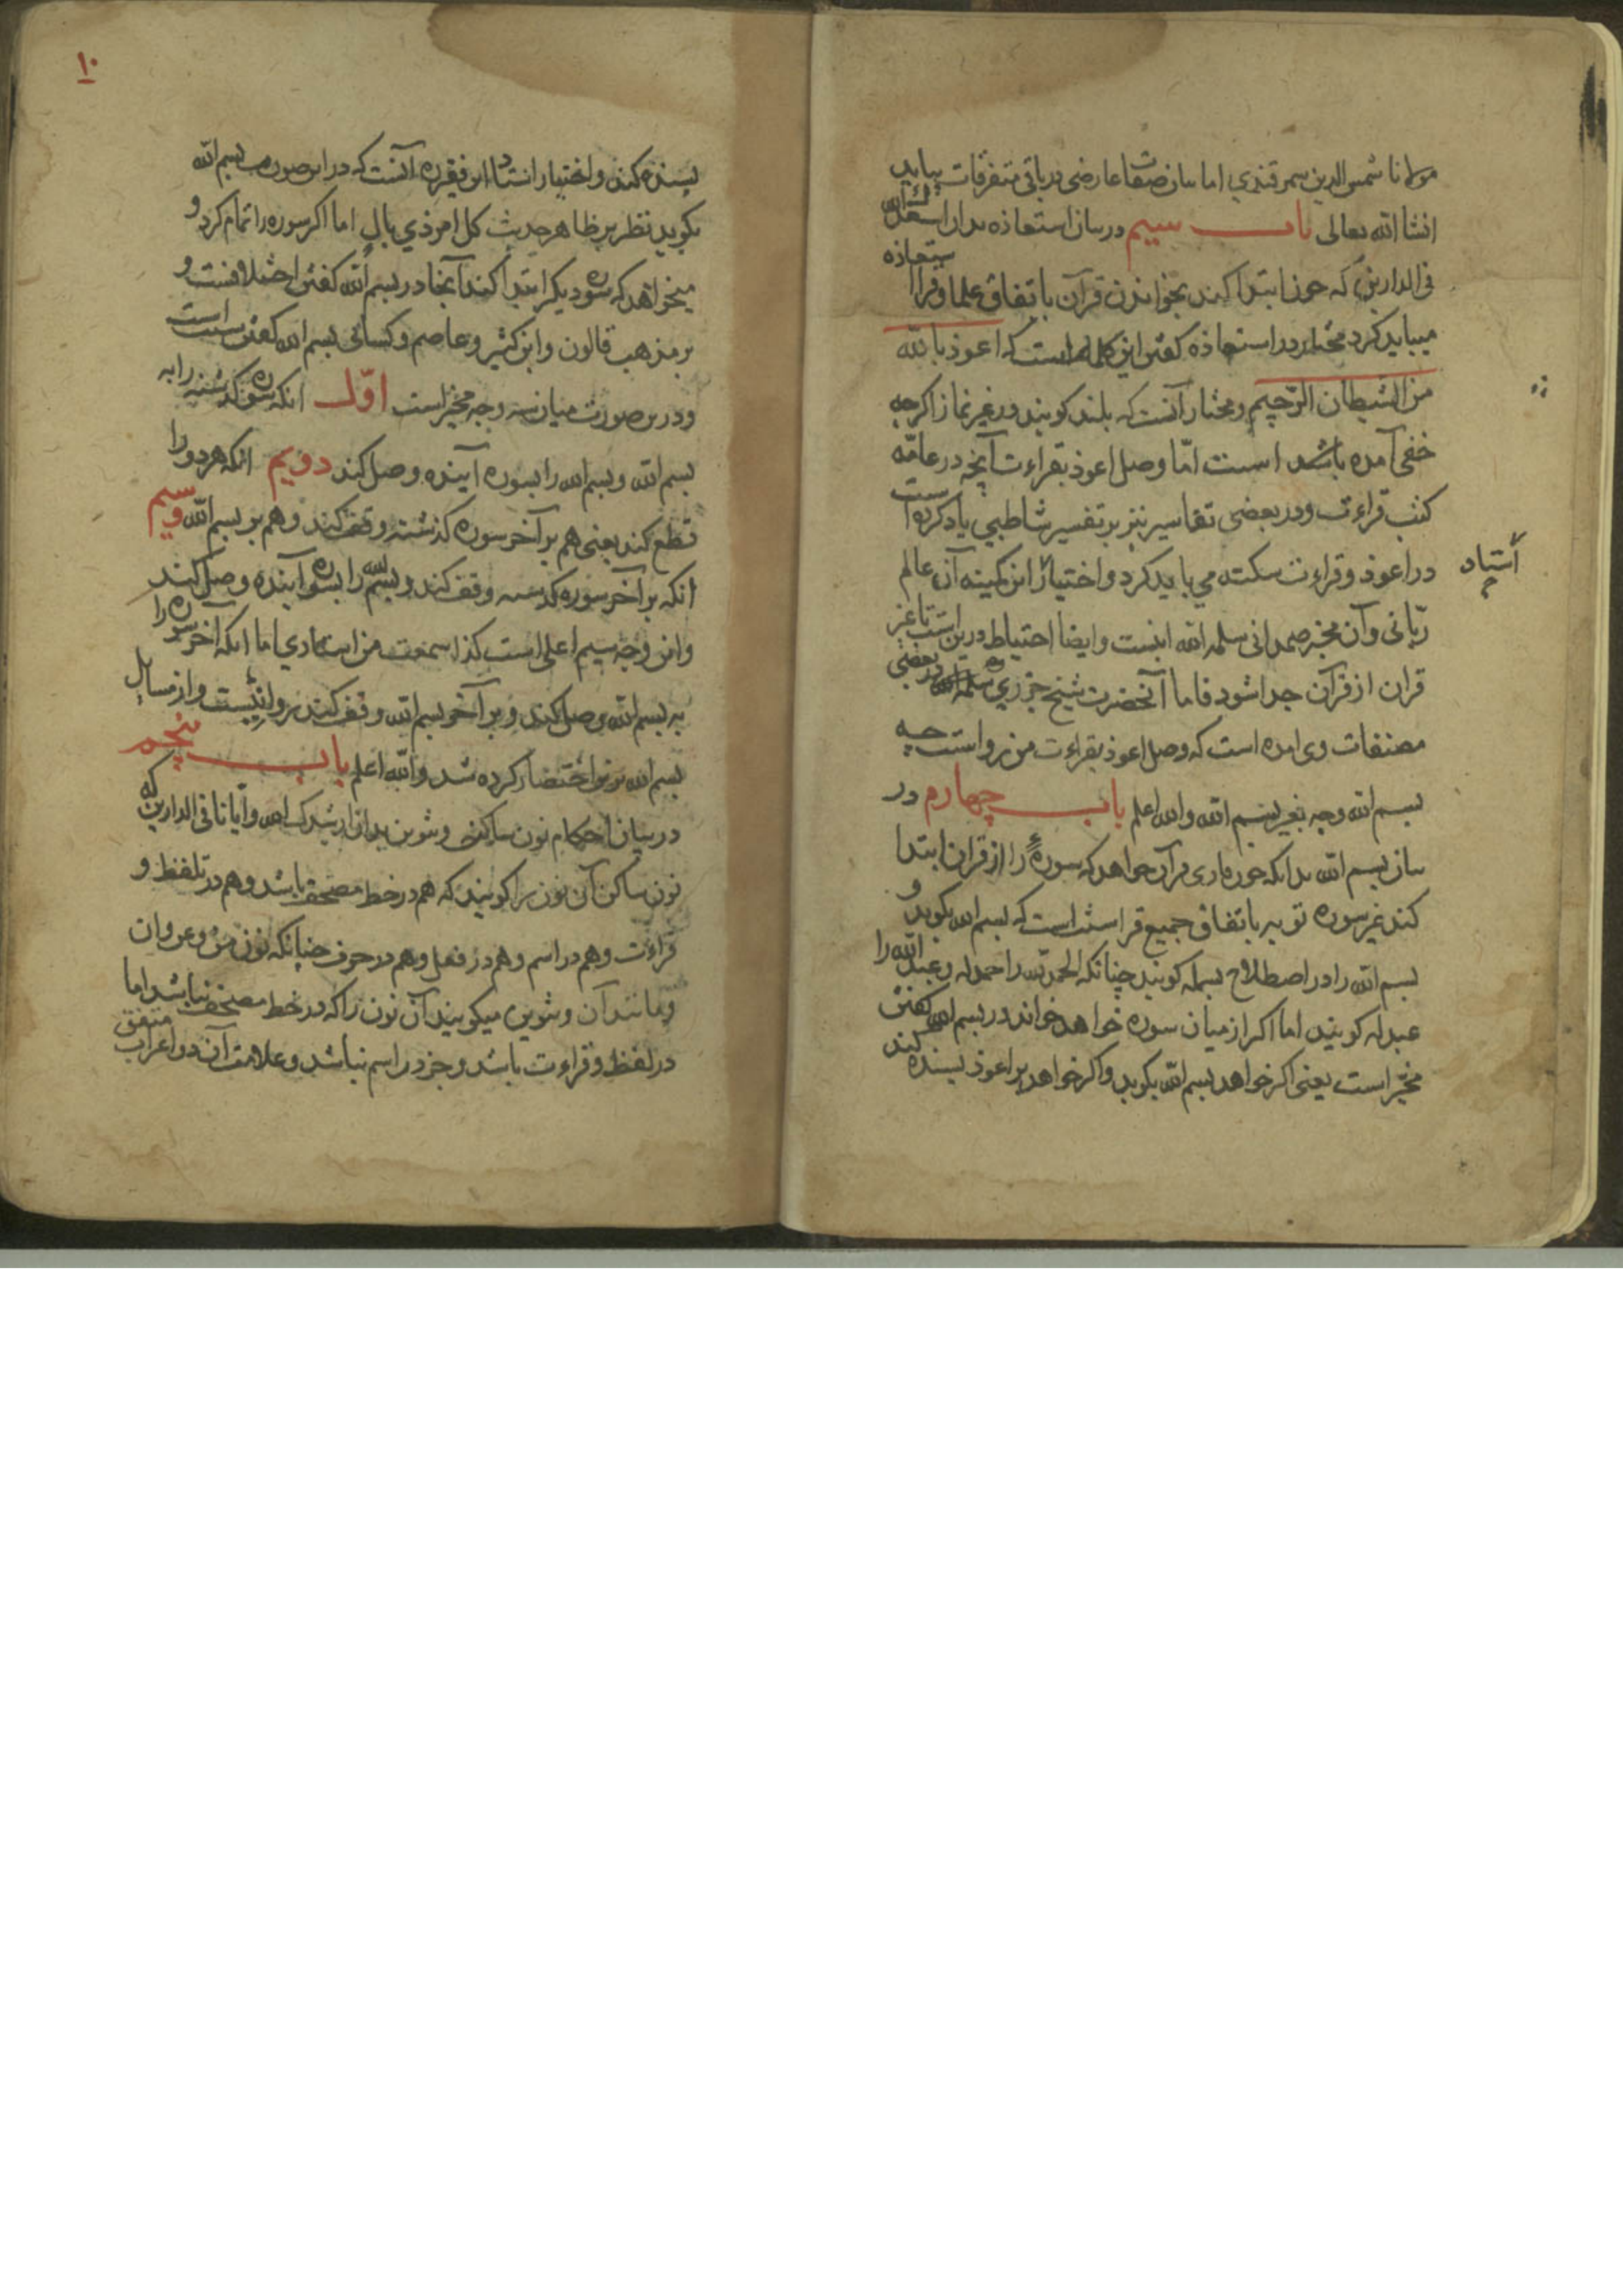 مولانا شمس الدین سمرقندي اما بیان صفات عارضی در باقی متفرقات بیاید
انشا الله تعالی باب سیم در بیان استعاذه بدان اسعدک الله
فی الدارین که چون ابتدا کنند بخواندن قرآن باتفاق علما و قرا استعاذه
میباید کرد مختار در استعاذه کفتن این کلمه است که اعوذ بالله
من الشیطان الرّجیم و مختار آنست که بلند کویند و در غیر نماز اکرچه
خفی آمده باشد است امّا وصل اعوذ بقراءت آنچه در عامّه
کتب قراءت و در بعضی تفاسیر نیز بر تفسیر شاطبي یاد کرده است
در اعوذ و قراءت سکته می باید کرد و اختیار این کمینه آن عالم
أستاد
ربّانی و آن مخبر صمدانی سلمه الله اینست و ایضا احتیاط درین است تا غیر
قران از قرآن جدا شود فاما آنحضرت شیخ جزري در بعضی
مصنفات وی امده است که وصل اعوذ بقراءت من رواست چه
بسم الله وجه بغیر بسم الله والله اعلم باب چهارم در
بیان بسم الله بدانکه چون قاری قرآن خواهد که سورهٔ را از قران ابتدا
کند غیر سوره توبه باتفاق جمیع قرا سنت است که بسم الله بکوید و
بسم الله را در اصطلاح بسمله کویند چنانکه الحمد لله را حمدله و عبد الله را
عبدله کویند اما اکر از میان سوره خواهد خواند در بسم الله کفتن
مخیّر است یعنی اکر خواهد بسم الله بکوید و اکر خواهد بر اعوذ بسنده کند
۱۰
بسنده کند و اختیار استاد این فقیره آنست که در این صورت بسم الله
بکوید نظر بر ظاهر حدیث کل امر ذي بالٍ اما اکر سوره را تمام کرد و
میخواهد که سوره دیکر ابتدا کند آنجا در بسم الله کفتن اختلافست و
بر مذهب قالون و ابن کثیر و عاصم و کسائی بسم الله کفتن سنت است
و درین صورت میان سه وجه مخیر است اوّل انکه سوره کذشته را به
بسم الله و بسم الله را بسوره آینده وصل کند دویم انکه هر دو را
قطع کند یعنی هم بر آخر سوره کذشته وقف کند و هم بر بسم الله و سیم
انکه بر آخر سوره کذشته وقف کند و بسم الله را بسوره آینده وصل کند
و این وجه سیم اعلی است کذا سمعت من استادي اما انکه آخر سوره را
به بسم الله وصل کند و بر آخر بسم الله وقف کند روا نیست و از مسایل
بسم الله برین اختصار کرده شد والله اعلم باب پنجم
در بیان احکام نون ساکن و تنوین بدان ارشدک الله و ایانا فی الدارین که
نون ساکن آن نون را کویند که هم در خط مصحف باشد و هم در تلفظ و
قراءت و هم در اسم و هم در فعل و هم در حرف چنانکه نون من و عن و ان
و مانند آن و تنوین میکویند آن نون را که در خط مصحف نباشد اما
در لفظ و قراءت باشد و جز در اسم نباشد و علامت آن دو اعراب متفق